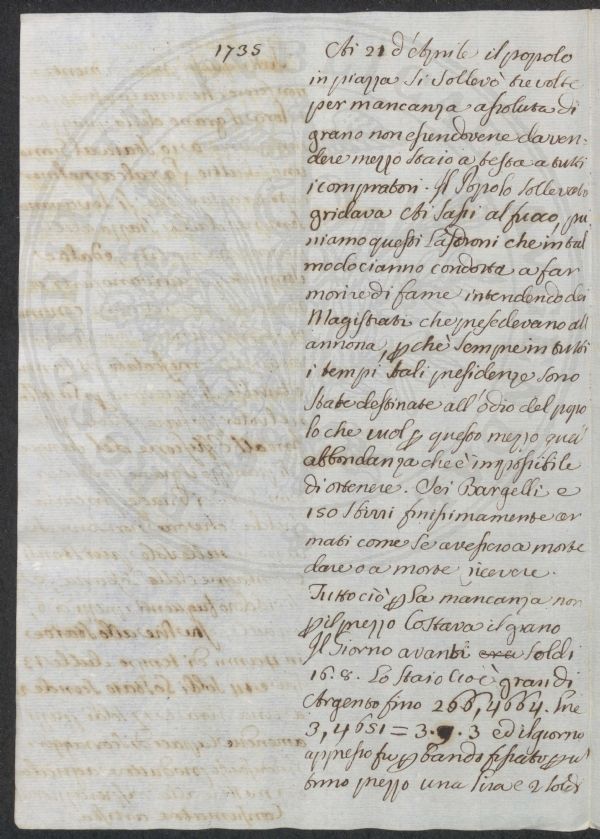 1735
Ai 21 d'Aprile il popolo
in piazza si sollevò tre volte
per mancanza assoluta di
grano non essendovene da ven-
dere mezzo staio a testa a tutti
i compratori. Il Popolo sollevato
gridava Ai sassi al fuoco,
niamo questi Ladroni che in tal
modo cianno condotti a far
morire di fame intendendo dei
Magistrati che presedevano all
annona, pchè sempre in tutti
i tempi tali presidenze sono
state destinate all'odio del popo
lo che vuol p questo mezzo quel
abbondanza che è impossibile
di ottenere. Sei Bargelli e
150 sbirri finissimamente ar
mati come se avessero a morte
dare o a morte ricevere.
Tutto ciò p La mancanza non
p il prezzo Costava il grano
Il Giorno avanti era soldi
16.8. Lo staio cioè grani di
Argento fino 266,4664. Lire
3,4651 = 3.9.3 ed il giorno
appresso fu p bando fissato p
timo prezzo una lira e 2 soldi